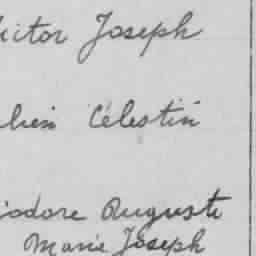 ictor Joseph
lien Célestin
iodore Auguste
Marie Joseph